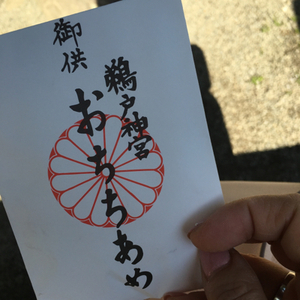 御供
鵜戸神宮
おちちあめ